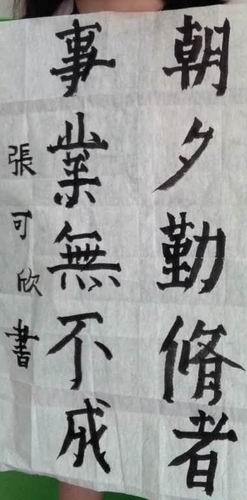 朝夕勤脩者
事業無不成
張可欣書